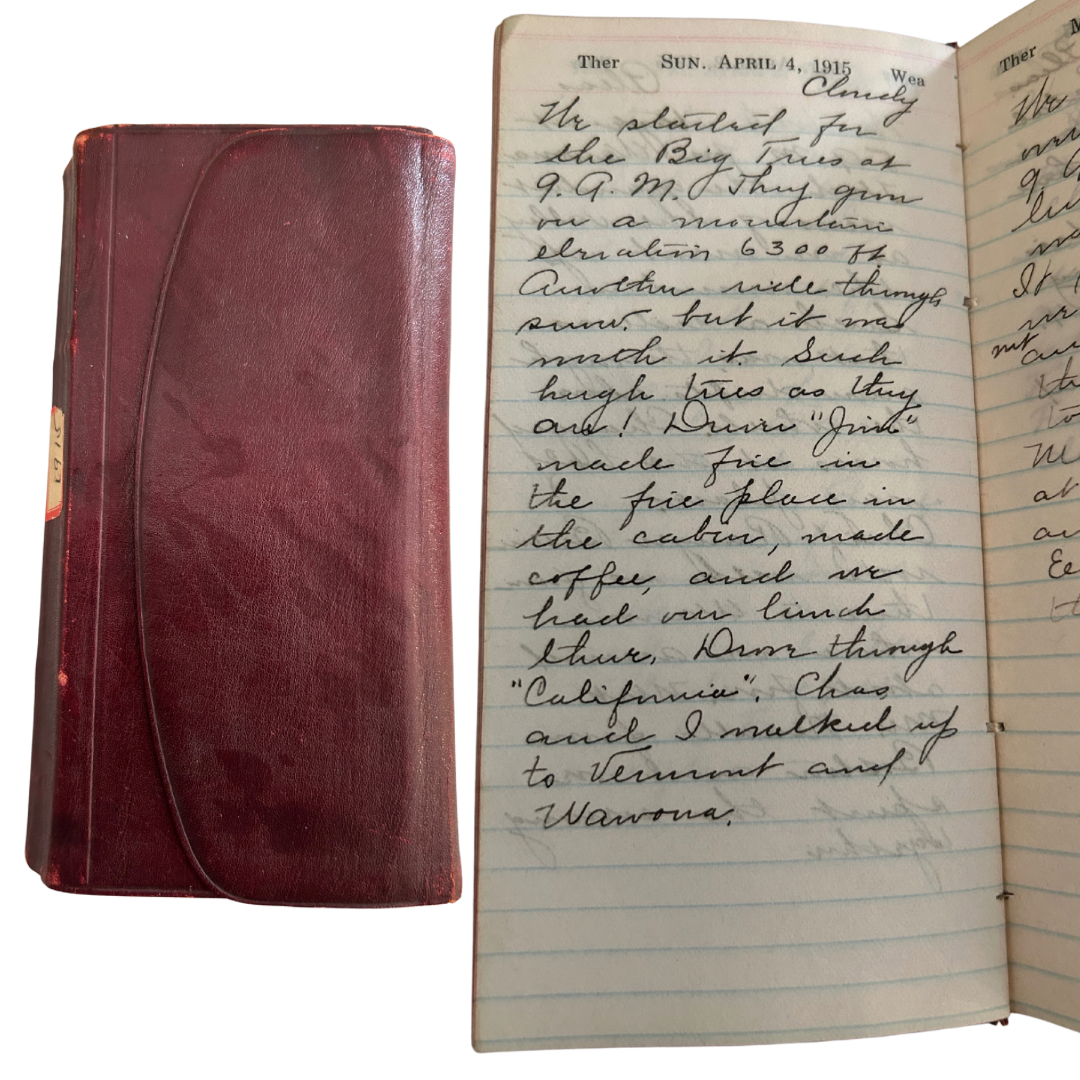 1915
Ther SUN. APRIL 4, 1915 Wea
Cloudy
We started for
the Big Trees at
9. A. M. They grow
on a mountain
elevation 6300 ft
Another ride through
snow. but it was
worth it. Such
hugh trees as they
are! Driver "Jim"
made fire in
the fire place in
the cabin, made
coffee, and we
had our lunch
there. Drove through
"California". Chas
and I walked up
to Vermont and
Wawona.
Ther M
We
9 A
It
we
not
th
to
M
at